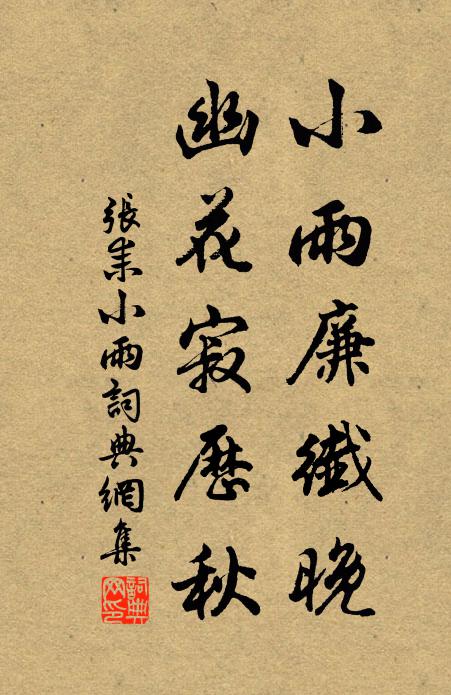 小雨廉纖晚
幽花寂歷秋
張耒小雨詞典網集
詞典網印